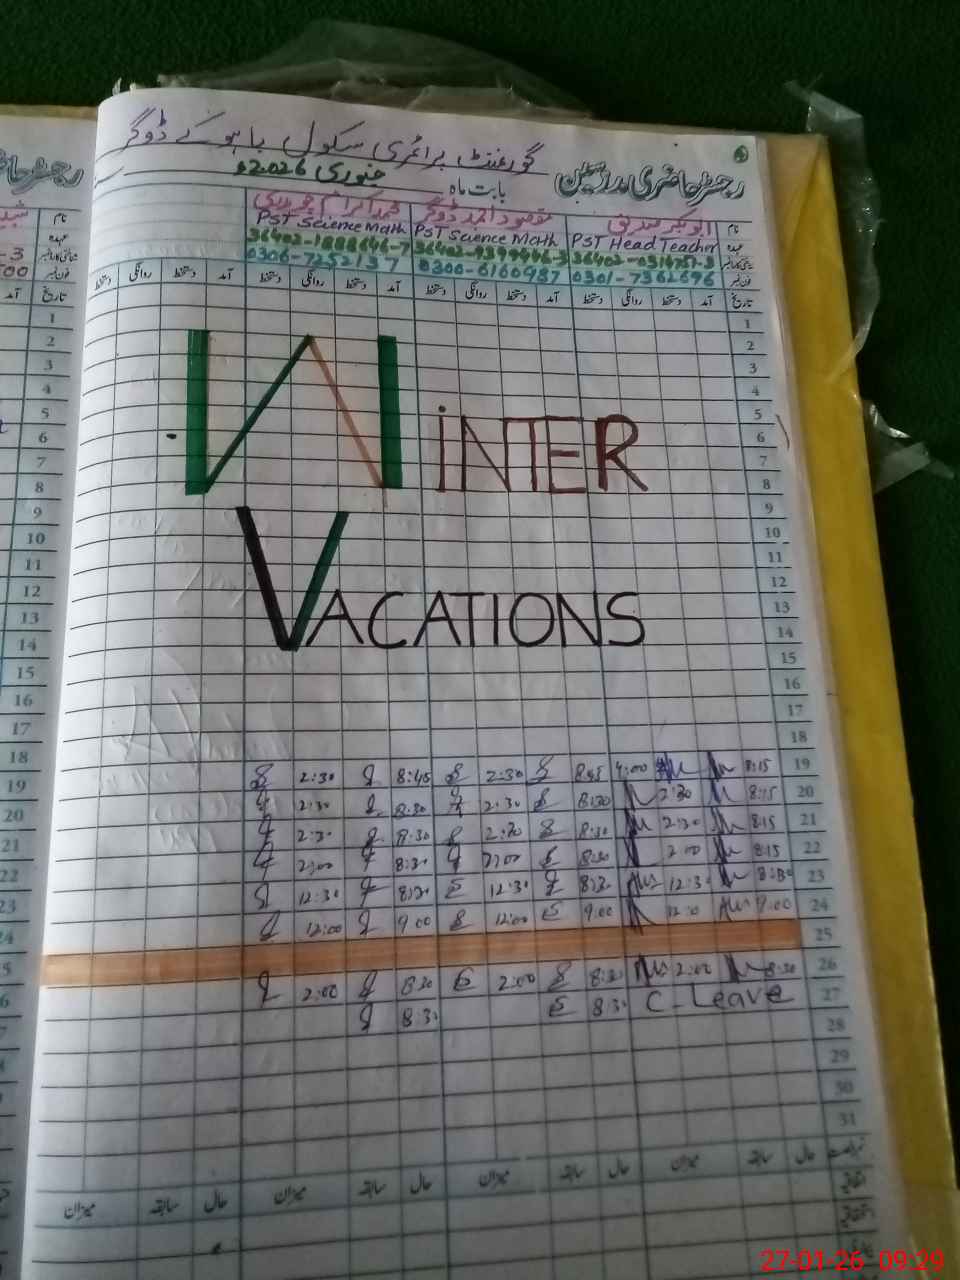 گورنمنٹ پرائمری سکول باہو کے ڈوگر
رجسٹر حاضری مدرسین بابت ماہ جنوری 2026ء
نام ابوبکر صدیق مقصود احمد ڈوگر محمد اکرام چوہدری
عہدہ PST Head Teacher PST Science Math PST Science Math
شناختی کارڈ نمبر 36402-0314757-3 36402-9399446-3 36402-1888646-7
فون نمبر 0301-7362696 0300-6160987 0306-7252137
تاریخ آمد دستخط روانگی دستخط آمد دستخط روانگی دستخط آمد دستخط روانگی دستخط آمد دستخط روانگی دستخط
1
2
3
4
5
6
7
8
WINTER
9
10
11
12
13
14
VACATIONS
15
16
17
18
2:30 8:45 2:30 8:45 4:00 8:15 19
2:30 8:30 2:30 8:30 2:30 8:15 20
2:30 8:30 2:30 8:30 2:30 8:15 21
2:00 8:30 2:00 8:30 2:00 8:15 22
12:30 8:30 12:30 8:30 12:30 8:30 23
12:00 9:00 12:00 9:00 12:0 9:00 24
25
2:00 8:30 2:00 8:30 2:00 8:30 26
8:30 8:30 C-Leave 27
28
29
30
31
حال سابقہ میزان حال سابقہ میزان حال سابقہ میزان حال سابقہ میزان
اتفاقیہ
استحقاقیہ
27-01-26 09:29